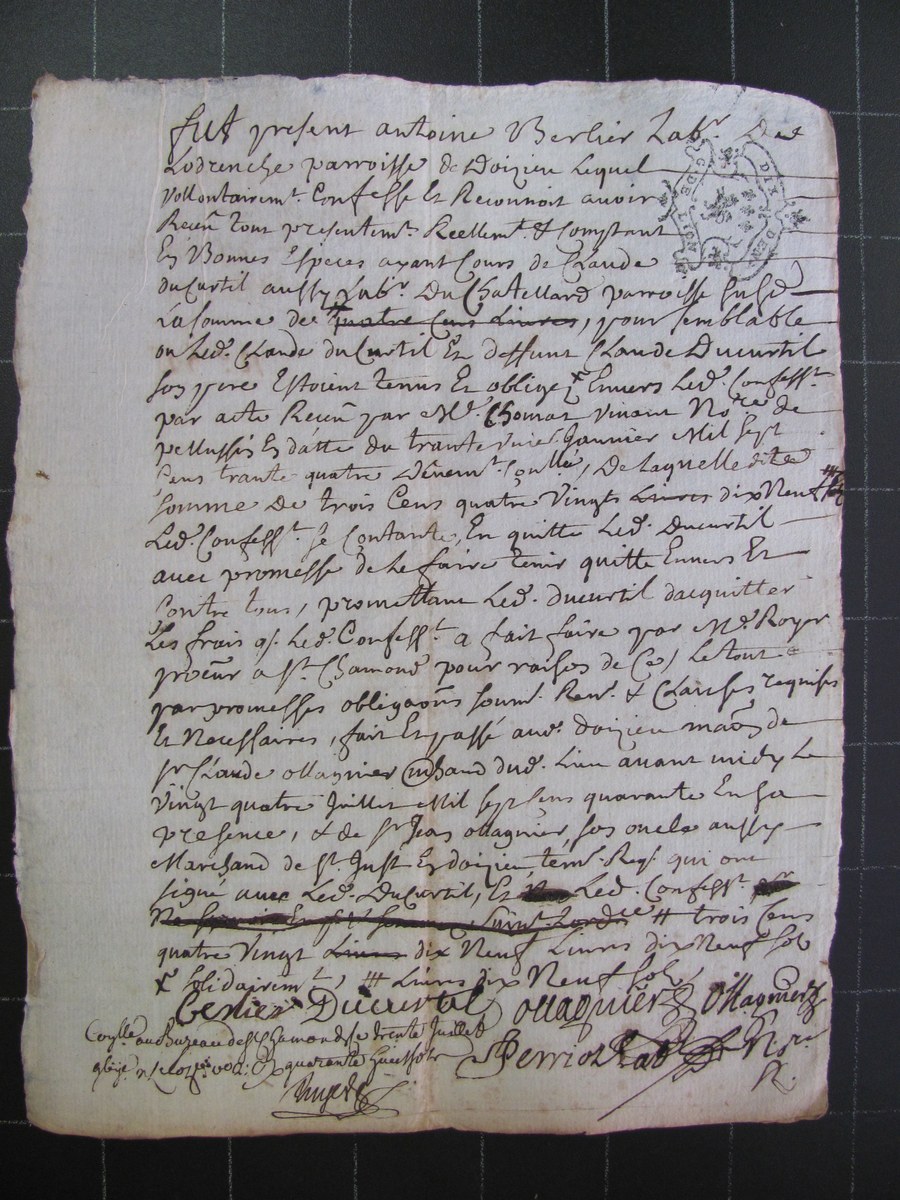 fut present antoine Berlier Labr. De
Lodrenche parroisse de Doizieu Lequel
Vollontairemt. Confesse Et Reconnoit avoir
Receu tout presentemt. Reellemt. & Comptant
En Bonnes Especes ayant Cours de Claude
duCurtil aussy Labr. Du Chatellard parroisse susd.
La somme de # quatre Cens Livres, pour semblable
ou Led. Claude duCurtil Et deffunt Claude Ducurtil
son pere Estoient tenus Et obligez Envers Led. Confesst.
par acte Receu par Me. Vinant Nore. de
pellussin En datte du trante Janvier Mil sept
Cens trante quatre Deuemt. , De laquelle ditte
somme de trois Cens quatre Vingts Livres dix Neuf #
Led. Confesst. se Contante, En quitte Led. Ducurtil
avec promesse de Le faire tenir quitte Envers Et
Contre tous, promettant Led. ducurtil dacquitter
Les frais q. Led. Confesst. a fait faire par Me. Royer
procur. a St. Chamond pour raison de Ce, Le tout
par promesses obligaons soum. Ren. & Clauses requises
Et Necessaires, fait Et passé aud. doizieu maon de
sr Claude ollagnier mchand dud. Lieu avant midy Le
Vingt quatre Juillet Mil sept Cens quarante En sa
presence, & de sr Jean ollagnier son oncle aussy
Marchand de St. Just En doizieu, tém. Req. qui ont
signé avec Led. DuCurtil, Et Led. Confesst.
# trois Cens
quatre Vingt Livres dix Neuf Livres dix Neuf sols
x solidairemt, # Livres dix Neuf sols,
Berlier Ducurtil ollagnier ollagnier
au Bureau de St Chamond le trente Juillet
quarante huit sols
Perrion Nore
R.